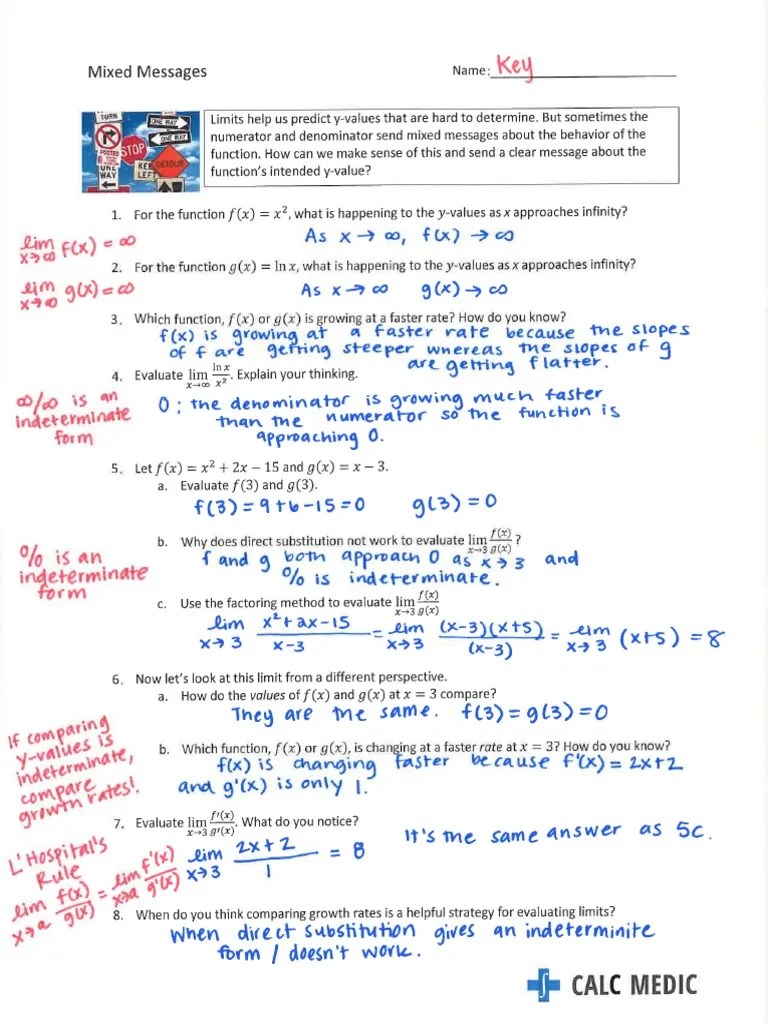 Mixed Messages
Name: Key
TURN
ONE WAY
ONE WAY
STOP
DETOUR
KEEP
LEFT
ONE
WAY
Limits help us predict y-values that are hard to determine. But sometimes the
numerator and denominator send mixed messages about the behavior of the
function. How can we make sense of this and send a clear message about the
function's intended y-value?
1. For the function f(x) = x², what is happening to the y-values as x approaches infinity?
lim x→∞ f(x) = ∞
As x → ∞, f(x) → ∞
2. For the function g(x) = ln x, what is happening to the y-values as x approaches infinity?
lim x→∞ g(x) = ∞
As x → ∞ g(x) → ∞
3. Which function, f(x) or g(x) is growing at a faster rate? How do you know?
f(x) is growing at a faster rate because the slopes
of f are getting steeper whereas the slopes of g
are getting flatter.
4. Evaluate lim x→∞ ln x / x². Explain your thinking.
∞/∞ is an
indeterminate
form
0; the denominator is growing much faster
than the numerator so the function is
approaching 0.
5. Let f(x) = x² + 2x − 15 and g(x) = x − 3.
a. Evaluate f(3) and g(3).
f(3) = 9+6−15 = 0 g(3) = 0
b. Why does direct substitution not work to evaluate lim x→3 f(x)/g(x)?
0/0 is an
indeterminate
form
f and g both approach 0 as x → 3 and
0/0 is indeterminate.
c. Use the factoring method to evaluate lim x→3 f(x)/g(x)
lim x→3 x²+2x−15 / x−3 = lim x→3 (x−3)(x+5) / (x−3) = lim x→3 (x+5) = 8
6. Now let's look at this limit from a different perspective.
a. How do the values of f(x) and g(x) at x = 3 compare?
They are the same. f(3) = g(3) = 0
If comparing
y-values is
indeterminate,
compare
growth rates!
b. Which function, f(x) or g(x), is changing at a faster rate at x = 3? How do you know?
f(x) is changing faster because f'(x) = 2x+2
and g'(x) is only 1.
7. Evaluate lim x→3 f'(x)/g'(x). What do you notice?
lim x→3 2x+2 / 1 = 8
It's the same answer as 5c.
L'Hospital's
Rule
lim x→a f(x)/g(x) = lim x→a f'(x)/g'(x)
8. When do you think comparing growth rates is a helpful strategy for evaluating limits?
When direct substitution gives an indeterminite
form / doesn't work.
CALC MEDIC